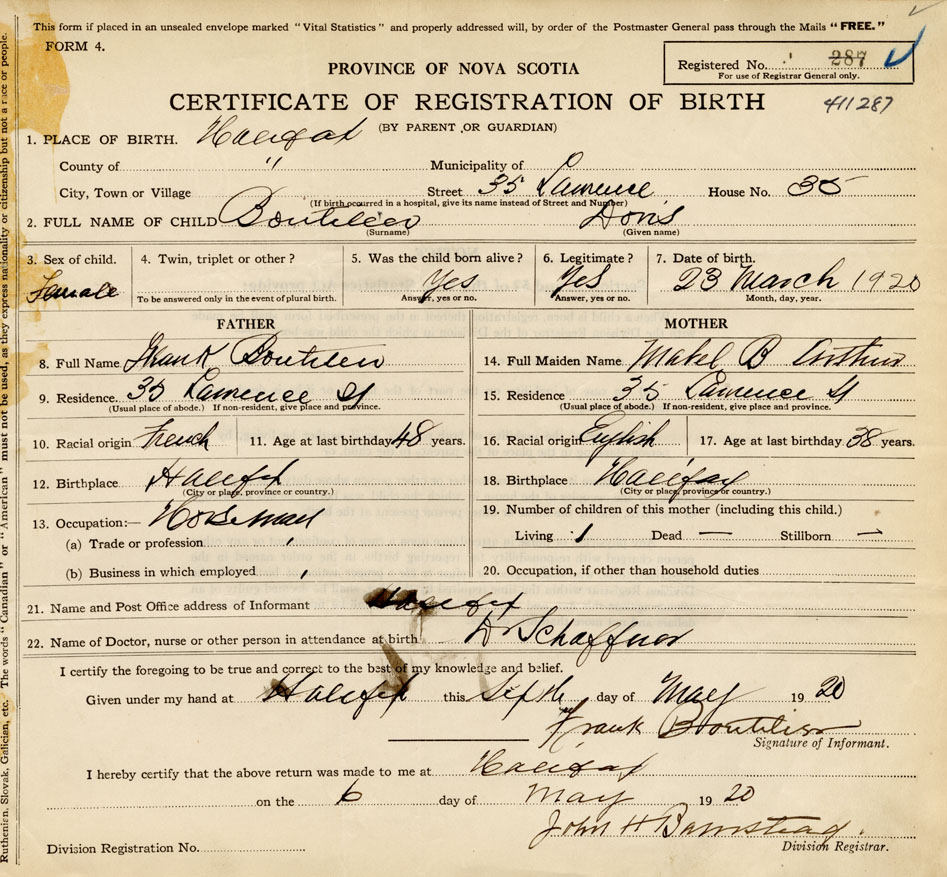 This form if placed in an unsealed envelope marked "Vital Statistics" and properly addressed will, by order of the Postmaster General pass through the Mails "FREE."
FORM 4.
Registered No. 287
For use of Registrar General only.
PROVINCE OF NOVA SCOTIA
CERTIFICATE OF REGISTRATION OF BIRTH
411287
(BY PARENT OR GUARDIAN)
1. PLACE OF BIRTH. Halifax
County of " Municipality of
City, Town or Village Street 35 Lawrence House No. 35
(If birth occurred in a hospital, give its name instead of Street and Number)
2. FULL NAME OF CHILD Boutilier Doris
(Surname) (Given name)
3. Sex of child. 4. Twin, triplet or other? 5. Was the child born alive? 6. Legitimate? 7. Date of birth.
Female Yes Yes 23 March 1920
To be answered only in the event of plural birth. Answer, yes or no. Answer, yes or no. Month, day, year.
FATHER
8. Full Name Frank Boutilier
9. Residence. 35 Lawrence St
(Usual place of abode.) If non-resident, give place and province.
10. Racial origin French 11. Age at last birthday 48 years.
12. Birthplace Halifax
(City or place, province or country.)
13. Occupation:— Horseman
(a) Trade or profession
(b) Business in which employed
MOTHER
14. Full Maiden Name Mabel B Arthur
15. Residence 35 Lawrence St
(Usual place of abode.) If non-resident, give place and province.
16. Racial origin English 17. Age at last birthday 38 years.
18. Birthplace Halifax
(City or place, province or country.)
19. Number of children of this mother (including this child.)
Living 1 Dead — Stillborn —
20. Occupation, if other than household duties
21. Name and Post Office address of Informant Halifax
22. Name of Doctor, nurse or other person in attendance at birth Dr Schaffner
I certify the foregoing to be true and correct to the best of my knowledge and belief.
Given under my hand at Halifax this Sixth day of May 1920
Frank Boutilier
Signature of Informant.
I hereby certify that the above return was made to me at Halifax
on the 6 day of May 1920
John H Barnstead.
Division Registration No. Division Registrar.
Ruthenien, Slovak, Galician, etc. The words "Canadian" or "American" must not be used, as they express nationality or citizenship but not a race or people.